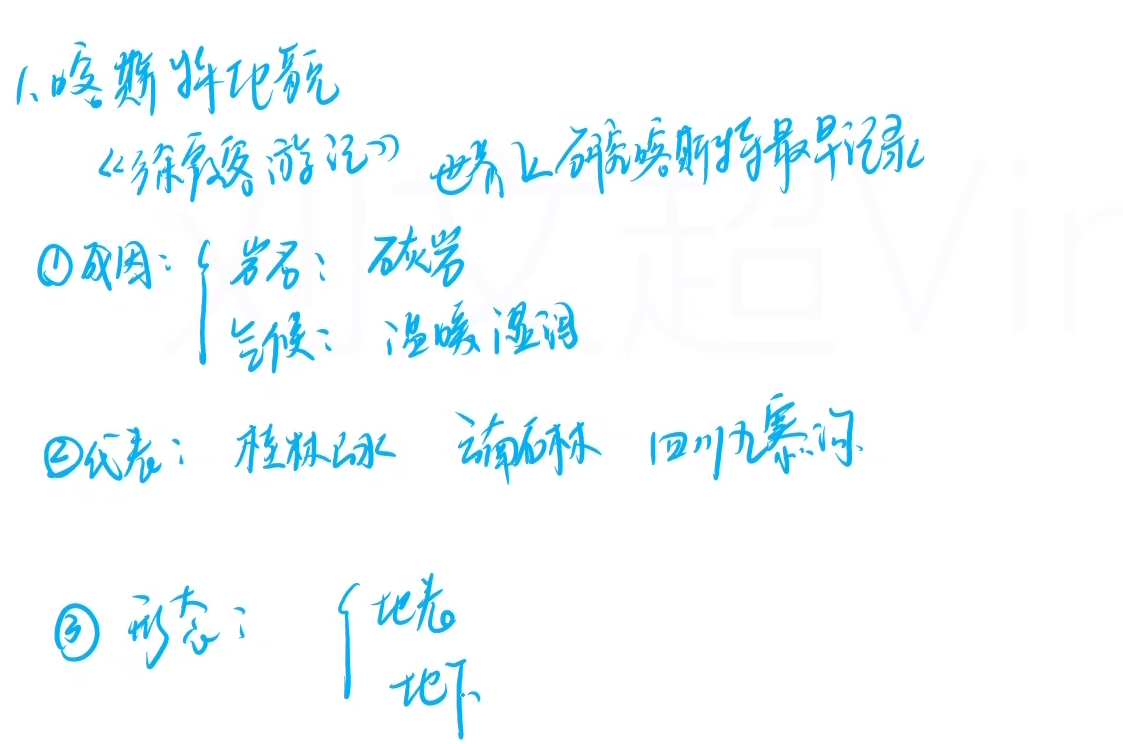 1、喀斯特地貌
《徐霞客游记》 世界上研究喀斯特最早记录
①成因: { 岩石: 石灰岩
气候: 温暖湿润
②代表: 桂林山水 云南石林 四川九寨沟
③ 形态: { 地表
地下